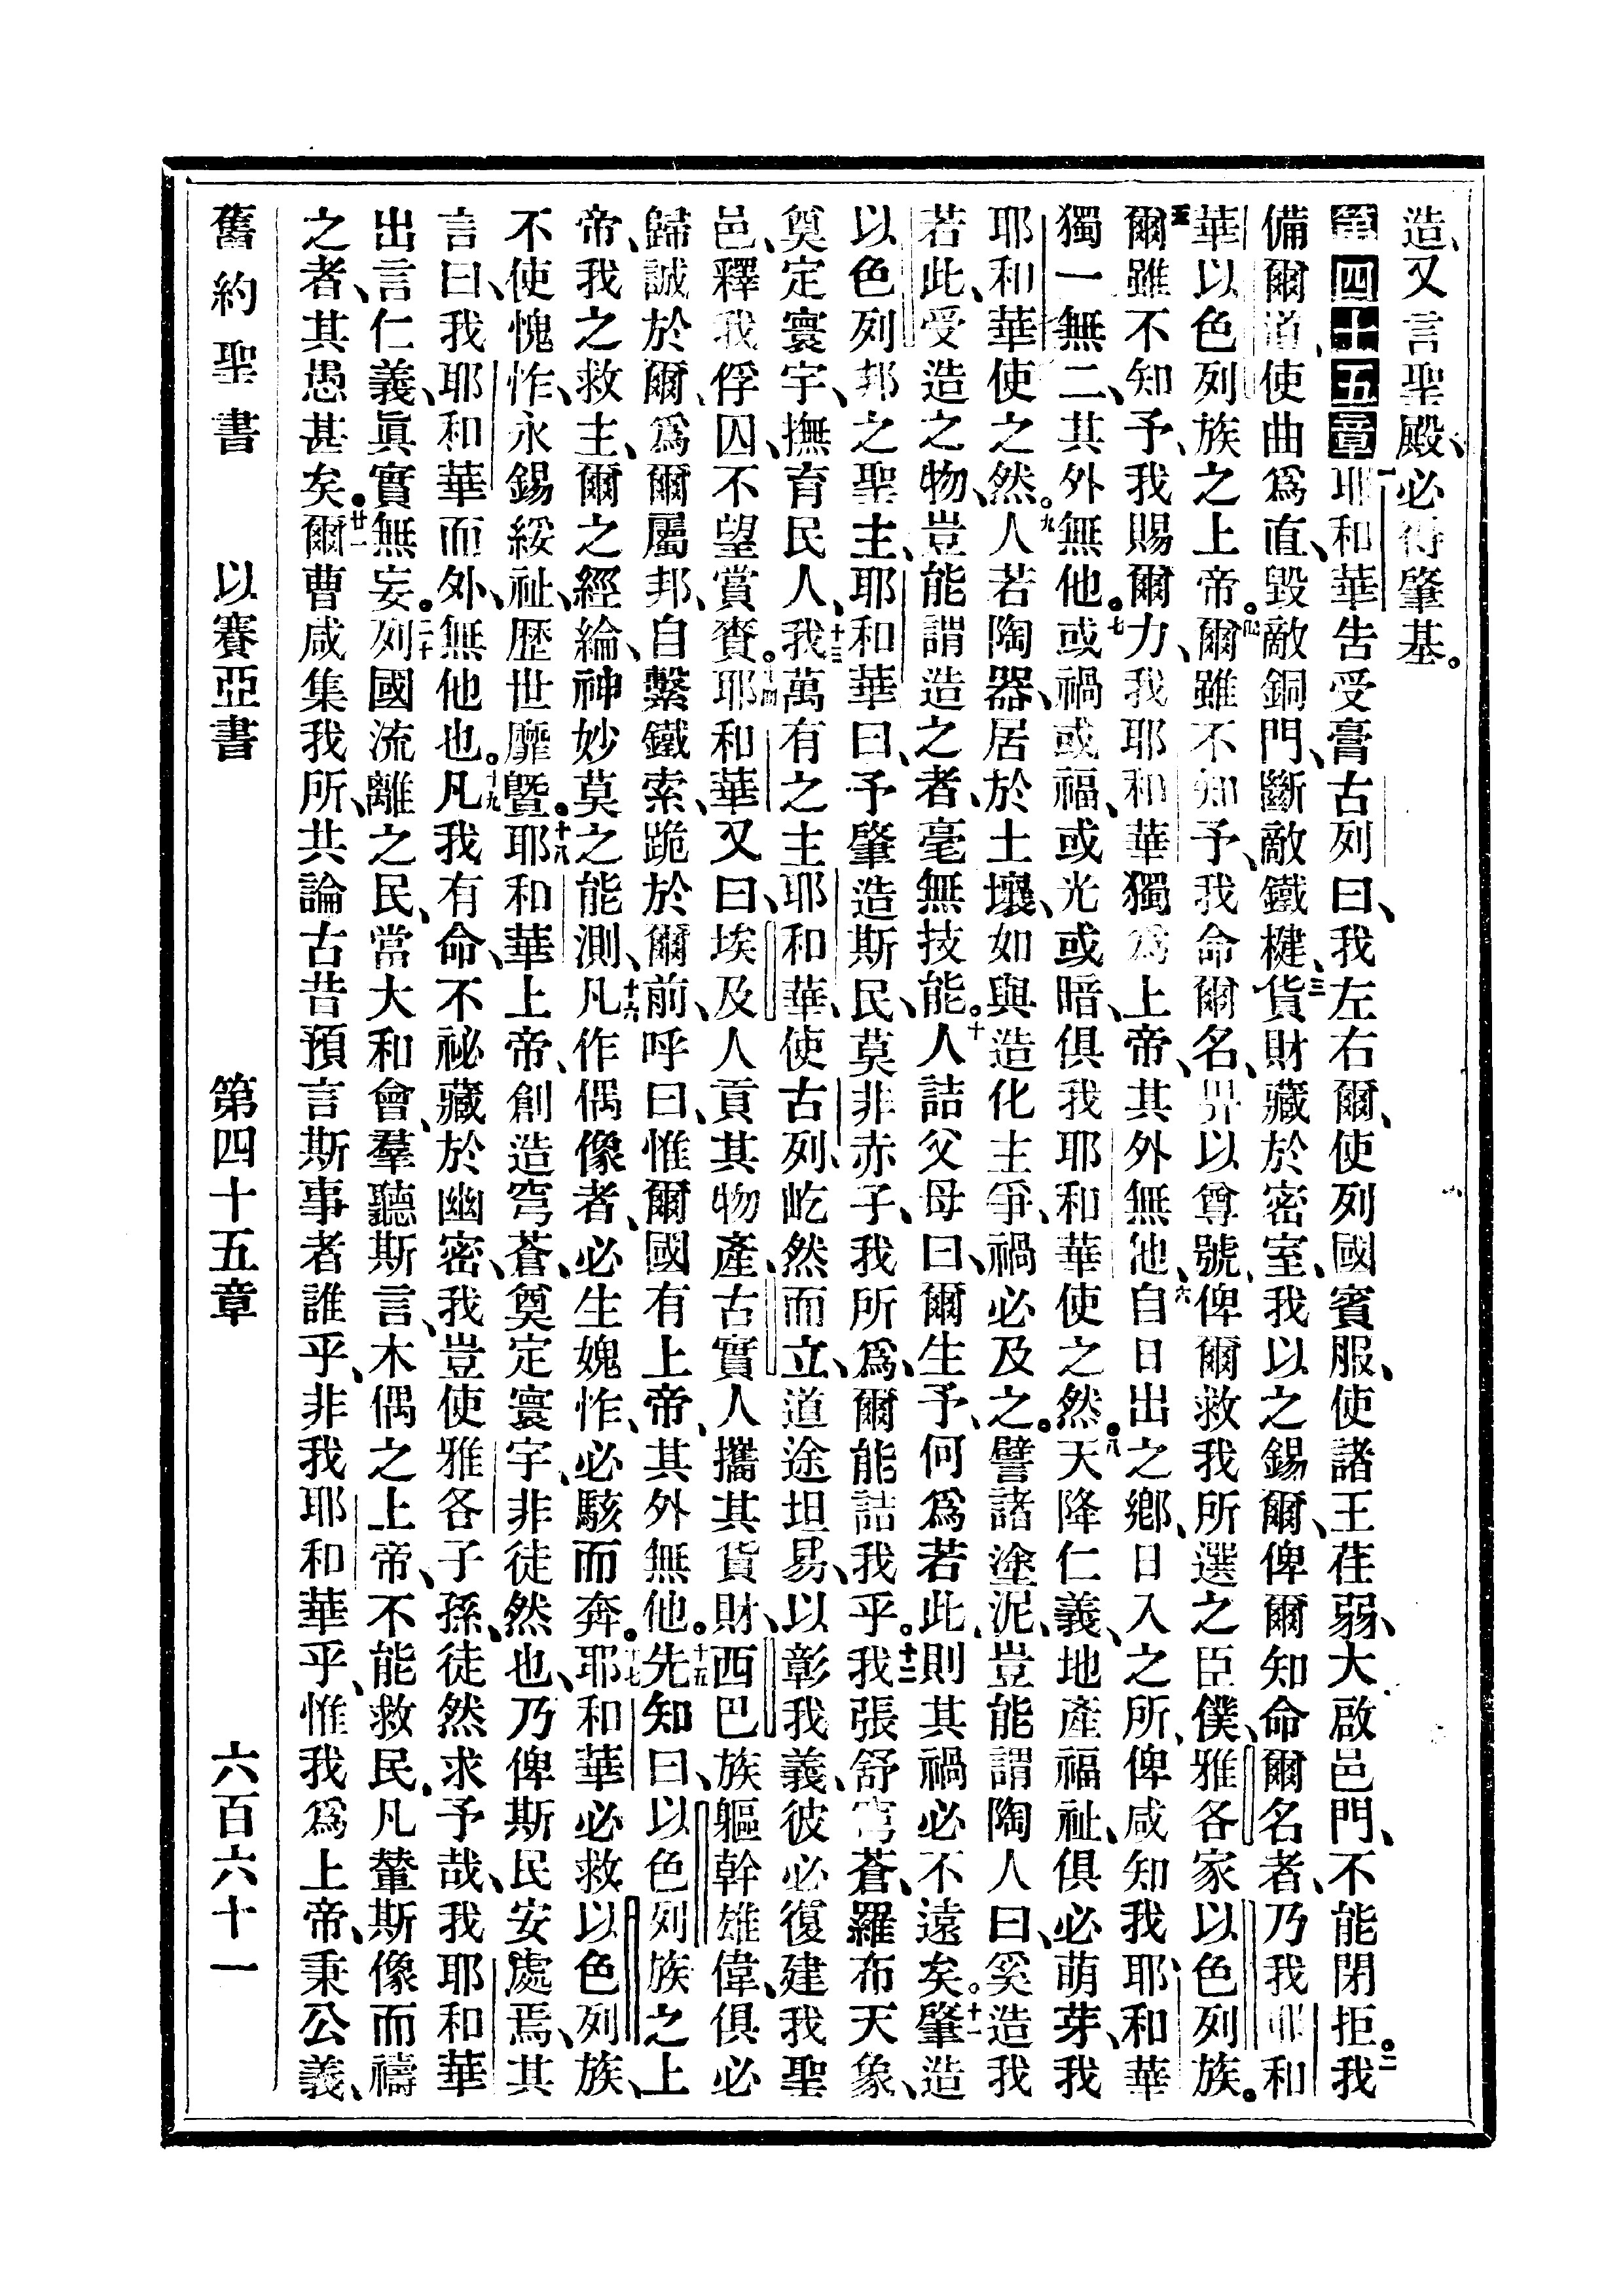 造、又言聖殿、必得肇基。
第四十五章一耶和華告受膏古列曰、我左右爾、使列國賓服、使諸王荏弱、大啟邑門、不能閉拒。二我
備爾道、使曲爲直、毀敵銅門、斷敵鐵楗、三貨財藏於密室、我以之錫爾、俾爾知命爾名者、乃我耶和
華以色列族之上帝。四爾雖不知予、我命爾名、畀以尊號、俾爾救我所選之臣僕、雅各家以色列族。
五爾雖不知予、我賜爾力、我耶和華獨爲上帝、其外無他、六自日出之鄉、日入之所、俾咸知我耶和華
獨一無二、其外無他。七或禍或福、或光或暗、俱我耶和華使之然。八天降仁義、地產福祉、俱必萌芽、我
耶和華使之然。九人若陶器、居於土壤、如與造化主爭、禍必及之。譬諸塗泥、豈能謂陶人曰、奚造我
若此、受造之物、豈能謂造之者、毫無技能。十人詰父母曰、爾生予、何爲若此、則其禍必不遠矣。十一肇造
以色列邦之聖主、耶和華曰、予肇造斯民、莫非赤子、我所爲、爾能詰我乎。十二我張舒穹蒼、羅布天象、
奠定寰宇、撫育民人、十三我萬有之主耶和華、使古列、屹然而立、道途坦易、以彰我義、彼必復建我聖
邑、釋我俘囚、不望賞賚。十四耶和華又曰、埃及人貢其物產、古實人攜其貨財、西巴族軀幹雄偉、俱必
歸誠於爾、爲爾屬邦、自繫鐵索、跪於爾前、呼曰、惟爾國有上帝、其外無他。十五先知曰、以色列族之上
帝、我之救主、爾之經綸、神妙莫之能測、十六凡作偶像者、必生媿怍、必駭而奔。十七耶和華必救以色列族、
不使愧怍、永錫綏祉、歷世靡曁。十八耶和華上帝、創造穹蒼、奠定寰宇、非徒然也、乃俾斯民安處焉、其
言曰、我耶和華而外、無他也。十九凡我有命、不祕藏於幽密、我豈使雅各子孫、徒然求予哉、我耶和華
出言仁義、眞實無妄。二十列國流離之民、當大和會、羣聽斯言、木偶之上帝、不能救民、凡輦斯像而禱
之者、其愚甚矣。廿一爾曹咸集我所、共論古昔預言斯事者誰乎、非我耶和華乎、惟我爲上帝、秉公義、
舊約聖書 以賽亞書 第四十五章 六百六十一